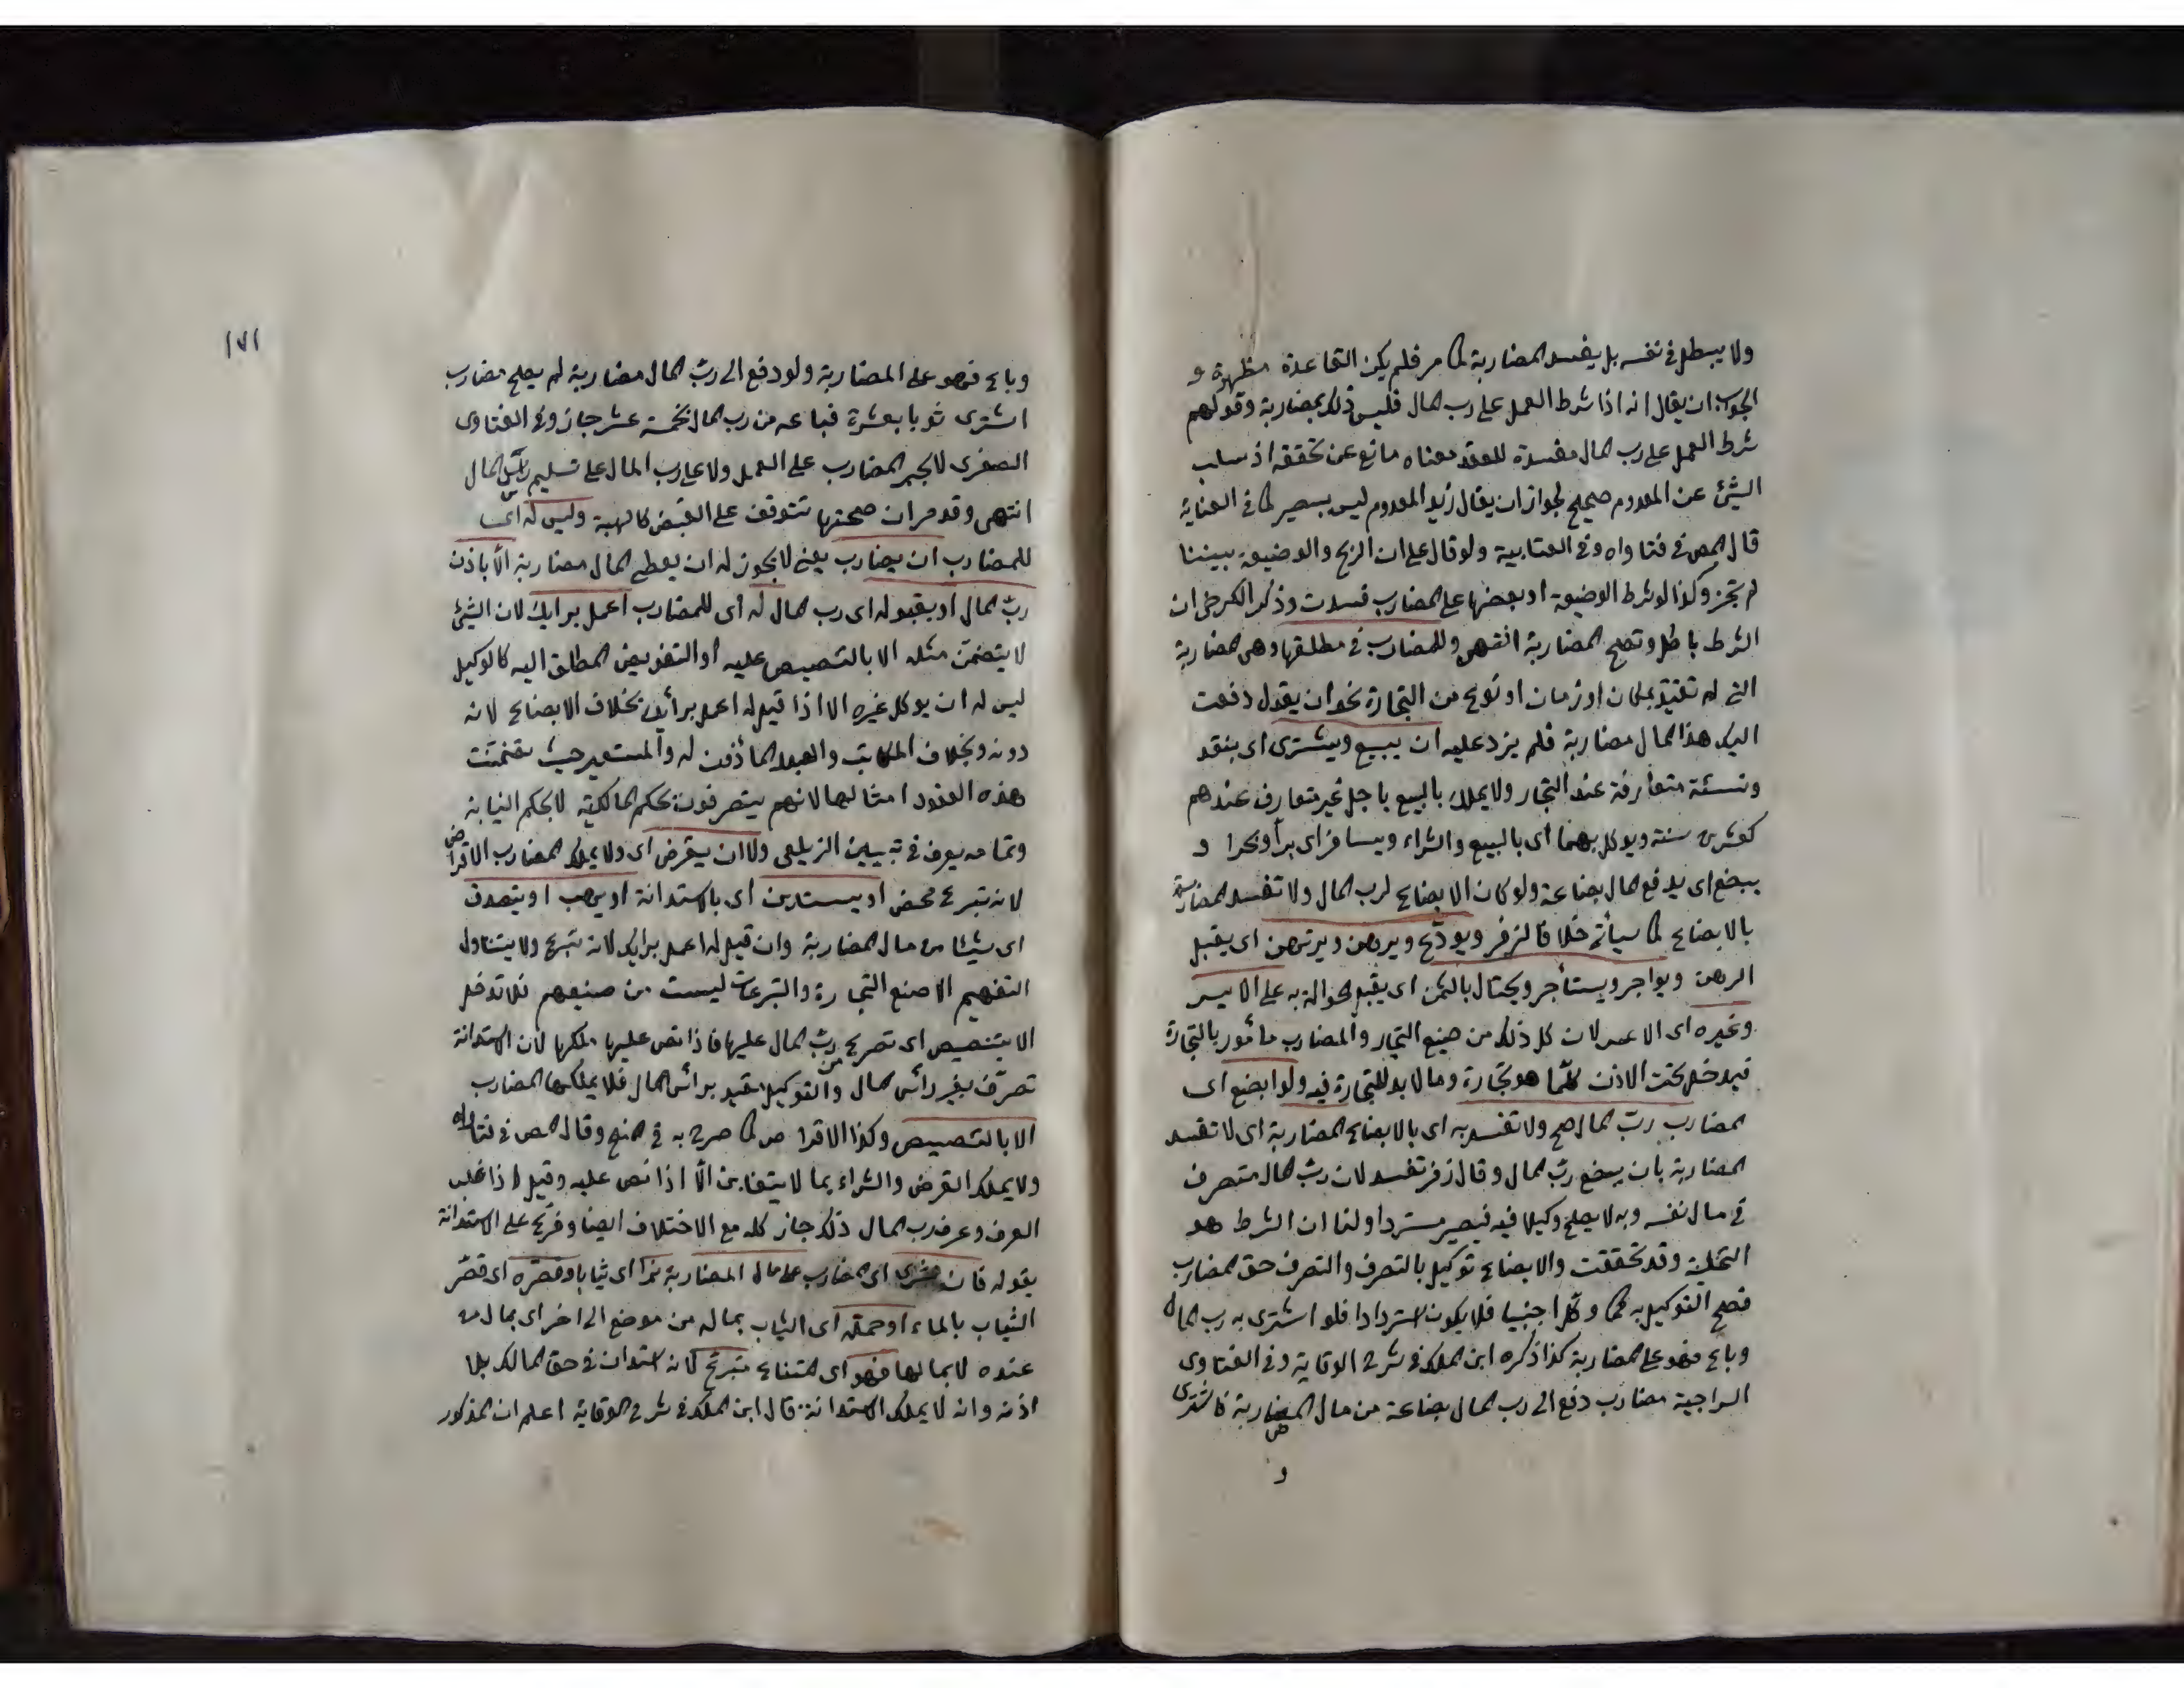 ولا يبطل في نفسه بل يفسد المضاربة كما مر فلم يكن القاعدة مطردة و
الجواب ان يقال انه اذا شرط العمل على رب المال فليس ذلك بمضاربة وقولهم
شرط العمل على رب المال مفسدة للعقد معناه مانع عن تحققه اذ سلب
الشئ عن المعدوم صحيح لجواز ان يقال زيد المعدوم ليس ببصير كما في العناية
قال المص في فتاواه وفي العتابية ولو قال على ان الربح والوضيعة بيننا
لم تجز وكذا لو شرط الوضيعة او بعضها على المضارب فسدت وذكر الكرخى ان
الشرط باطل وتصح المضاربة انتهى وللمضارب في مطلقها وهي مضاربة
التي لم تتقيد بمكان او زمان او نوع من التجارة نحو ان يقول دفعت
اليك هذا المال مضاربة فلم يزد عليه ان يبيع ويشترى اى بنقد
ونسئة متعارفة عند التجار ولا يملك بالبيع باجل غير متعارف عندهم
كعشرين سنة ويوكل بهما اى بالبيع والشراء ويسافر اى برا وبحرا و
يبضع اى يدفع المال بضاعة ولو كان الابضاع لرب المال ولا تفسد المضاربة
بالابضاع كما سيأتى خلافا لزفر ويودع ويرهن ويرتهن اى يقبل
الرهن ويواجر ويستأجر ويحتال بالثمن اى يقبل الحوالة به على الايسر
وغيره اى الاعسر لان كل ذلك من صنيع التجار والمضارب مأمور بالتجارة
فيدخل تحت الاذن كلما هو تجارة وما لا بد للتجارة فيه ولو ابضع اى
المضارب رب المال صح ولا تفسد به اى بالابضاع المضاربة اى لا تفسد
المضاربة بان يبضع رب المال وقال زفر تفسد لان رب المال متصرف
في مال نفسه وبه لا يصلح وكيلا فيه فيصير مستردا ولنا ان الشرط هو
التخلية وقد تحققت والابضاع توكيل بالتصرف والتصرف حق المضارب
فصح التوكيل به كما وكل اجنبيا فلا يكون استردادا فلو اشترى به رب المال
وباع فهو على المضاربة كذا ذكره ابن الملك في شرح الوقاية وفي الفتاوى
السراجية مضارب دفع الى رب المال بضاعة من مال المضاربة فاشترى
و
١٧١
وباع فهو على المضاربة ولو دفع الى رب المال مضاربة لم يصح مضارب
اشترى ثوبا بعشرة فباعه من رب المال بخمسة عشر جاز وفي الفتاوى
الصغرى لا يجبر المضارب على العمل ولا على رب المال على تسليم رأس المال
انتهى وقد مر ان صحتها تتوقف على القبض كالهبة وليس له اى
للمضارب ان يضارب يعني لا يجوز له ان يعطى المال مضاربة الا باذن
رب المال او بقوله اى رب المال له اى للمضارب اعمل برايك لان الشئ
لا يتضمن مثله الا بالتنصيص عليه او التفويض المطلق اليه كالوكيل
ليس له ان يوكل غيره الا اذا قيل له اعمل برأيك بخلاف الابضاع لانه
دونه وبخلاف المكاتب والعبد المأذون له والمستعير حيث تضمنت
هذه العقود امثالها لانهم يتصرفون بحكم المالكية لا بحكم النيابة
وتمامه يعرف في تبيين الزيلعى ولا ان يقرض اى ولا يملك المضارب الاقراض
لانه تبرع محض او يستدين اى بالاستدانة او يهب او يتصدق
اى شيئا من مال المضاربة وان قيل له اعمل برايك لانه تبرع ولا يتناول
التفهيم الا صنع التجارة والتبرعات ليست من صنيعهم فلا تدخل
الا بتنصيص اى تصريح من رب المال عليها فاذا نص عليها ملكها لان الاستدانة
تصرف بغير رأس المال والتوكيل مقيد برأس المال فلا يملكها المضارب
الا بالتنصيص وكذا الاقراض كما صرح به في المنح وقال المص في فتاواه
ولا يملك القرض والشراء بما لا يتغابن الا اذا نص عليه وقيل اذا غلب
العرف وعرف رب المال ذلك جاز كله مع الاختلاف ايضا وفرع على الاستدانة
بقوله فان شرى اى المضارب على مال المضاربة بزا اى ثيابا وقصره اى قصر
الثياب بالماء او حمله اى الثياب بماله من موضع الى اخر اى بمال من
عنده لا بمالها فهو اى متبرع لانه استدان في حق المالك بلا
اذنه وانه لا يملك الاستدانة قال ابن الملك في شرح الوقاية اعلم ان المذكور